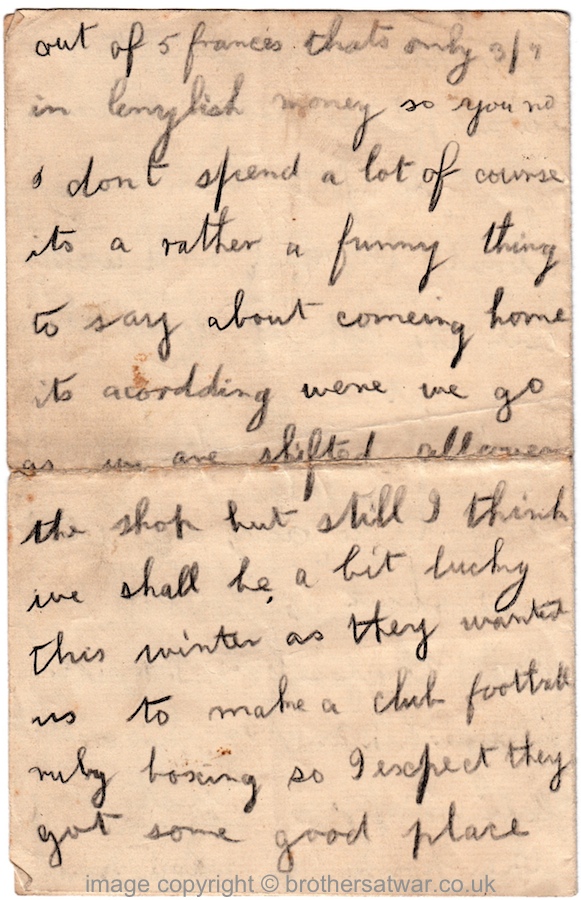 out of 5 frances thats only 3/9
inIenglish money so you no
I dont spend a lot of course
its a rather a funny thing
to say about comeing home
its acordding were we go
as we are shifted all over
the shop but still I think
we shall be, a bit lucky
this winter as they wanted
us to make a club football
ruby boxing so I expect they
got some good place
image copyright © brothersatwar.co.uk